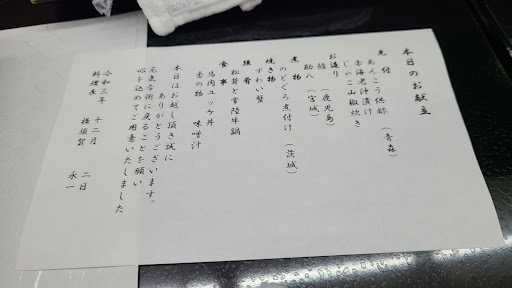 本日のお献立
先付 あんこう供酢（青森）
赤海老沖漬け
じゃこ山椒炊き
お造り
鰹（鹿児島）
勘八（宮城）
煮物
のどぐろ煮付け（茨城）
焼き物
ずわい蟹
強肴
松茸と常陸牛鍋
食事
馬肉ユッケ丼
香の物 味噌汁
本日はお越し頂き誠に
ありがとうございます。
元気な街に戻ることを願い
心を込めてご用意いたしました
令和三年 十二月 二日
料理長 横須賀 永一